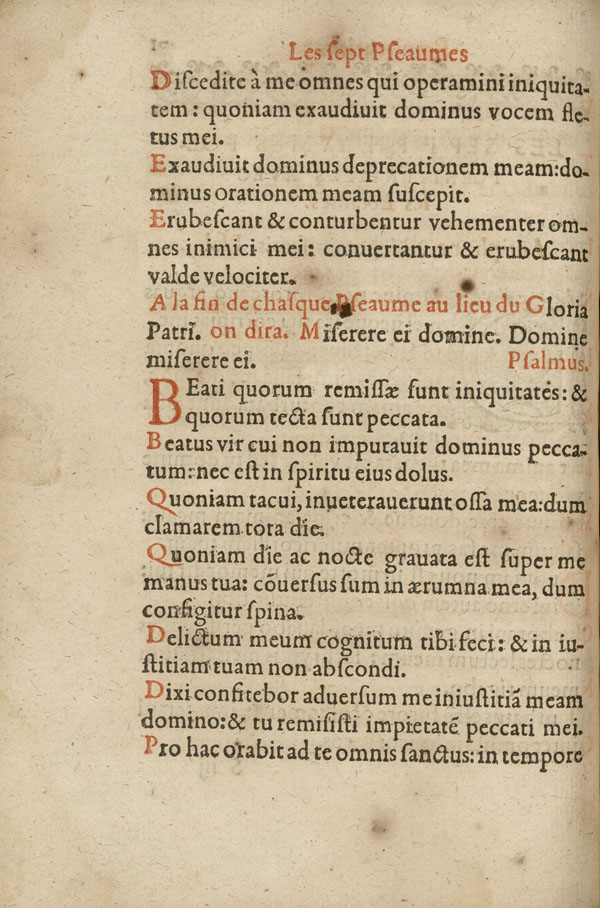 Les ſept Pſeaumes
Diſcedite à me omnes qui operamini iniquita-
tem: quoniam exaudiuit dominus vocem fle-
tus mei.
Exaudiuit dominus deprecationem meam: do-
minus orationem meam ſuſcepit.
Erubeſcant & conturbentur vehementer om-
nes inimici mei: conuertantur & erubeſcant
valde velociter.
A la fin de chaſque Pſeaume au lieu du Gloria
Patri. on dira. Miſerere ei domine. Domine
miſerere ei. Pſalmus.
BEati quorum remiſſæ ſunt iniquitates: &
quorum tecta ſunt peccata.
Beatus vir cui non imputauit dominus pecca-
tum: nec eſt in ſpiritu eius dolus.
Quoniam tacui, inueterauerunt oſſa mea: dum
clamarem tota die.
Quoniam die ac nocte grauata eſt ſuper me
manus tua: cõuerſus ſum in ærumna mea, dum
configitur ſpina.
Delictum meum cognitum tibi feci: & in iu-
ſtitiam tuam non abſcondi.
Dixi confitebor aduerſum me iniuſtitiã meam
domino: & tu remiſiſti impietatẽ peccati mei.
Pro hac orabit ad te omnis ſanctus: in tempore